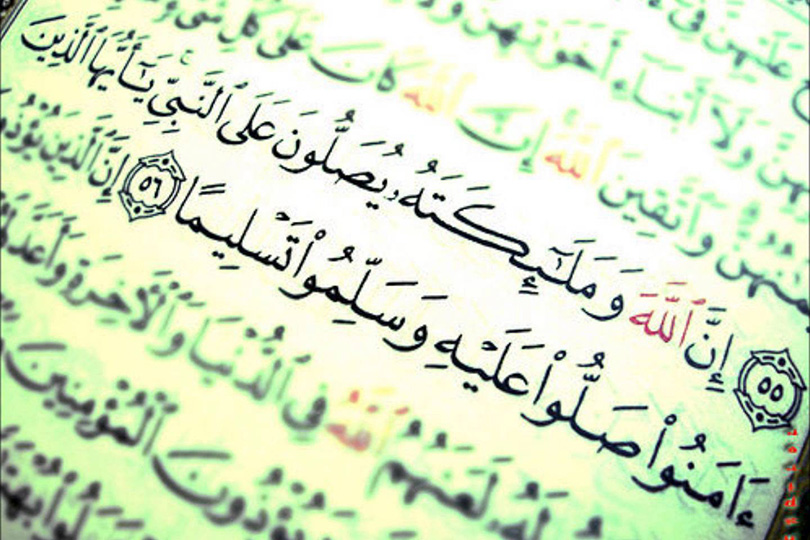 عَلَيْهِنَّ فِىٓ
وَلَآ أَبْنَآءِ أَخَوَٰتِهِنَّ وَلَا
وَٱتَّقِينَ ٱللَّهَ إِنَّ ٱللَّهَ كَانَ عَلَىٰ كُلِّ شَىْءٍ
۝٥٥ إِنَّ ٱللَّهَ وَمَلَـٰٓئِكَتَهُۥ يُصَلُّونَ عَلَى ٱلنَّبِىِّ يَـٰٓأَيُّهَا ٱلَّذِينَ
ءَامَنُوا۟ صَلُّوا۟ عَلَيْهِ وَسَلِّمُوا۟ تَسْلِيمًا ۝٥٦ إِنَّ ٱلَّذِينَ يُؤْذُونَ
لَعَنَهُمُ ٱللَّهُ فِى ٱلدُّنْيَا وَٱلْـَٔاخِرَةِ وَأَعَدَّ
يُؤْذُونَ ٱلْمُؤْمِنِينَ